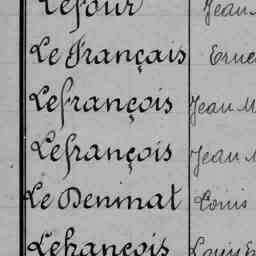 Lefour Jean
Le Français Erne
Lefrançois Jean M
Lefrançois Jean M
Le Denmat Louis
Lefrançois Louis